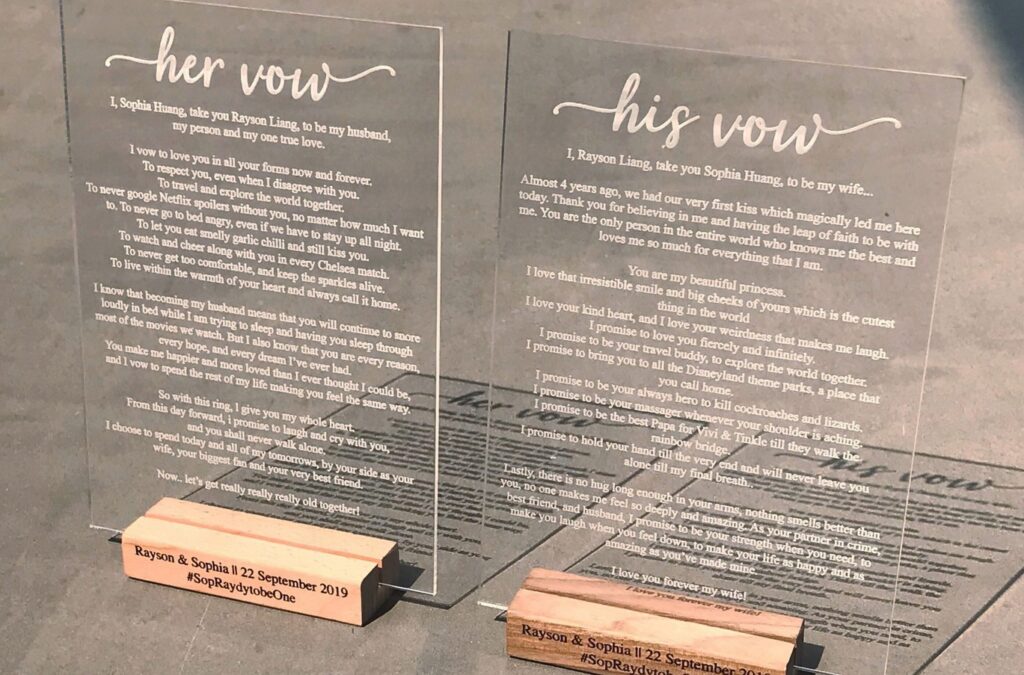 her vow
I, Sophia Huang, take you Rayson Liang, to be my husband,
my person and my one true love.
I vow to love you in all your forms now and forever.
To respect you, even when I disagree with you.
To travel and explore the world together.
To never google Netflix spoilers without you, no matter how much I want
to. To never go to bed angry, even if we have to stay up all night.
To let you eat smelly garlic chilli and still kiss you.
To watch and cheer along with you in every Chelsea match.
To never get too comfortable, and keep the sparkles alive.
To live within the warmth of your heart and always call it home.
I know that becoming my husband means that you will continue to snore
loudly in bed while I am trying to sleep and having you sleep through
most of the movies we watch. But I also know that you are every reason,
every hope, and every dream I've ever had.
You make me happier and more loved than I ever thought I could be,
and I vow to spend the rest of my life making you feel the same way.
So with this ring, I give you my whole heart.
From this day forward, i promise to laugh and cry with you,
and you shall never walk alone.
I choose to spend today and all of my tomorrows, by your side as your
wife, your biggest fan and your very best friend.
Now.. let's get really really really old together!
Rayson & Sophia || 22 September 2019
#SopRaydytobeOne
his vow
I, Rayson Liang, take you Sophia Huang, to be my wife...
Almost 4 years ago, we had our very first kiss which magically led me here
today. Thank you for believing in me and having the leap of faith to be with
me. You are the only person in the entire world who knows me the best and
loves me so much for everything that I am.
You are my beautiful princess.
I love that irresistible smile and big cheeks of yours which is the cutest
thing in the world
I love your kind heart, and I love your weirdness that makes me laugh.
I promise to love you fiercely and infinitely.
I promise to be your travel buddy, to explore the world together.
I promise to bring you to all the Disneyland theme parks, a place that
you call home.
I promise to be your always hero to kill cockroaches and lizards.
I promise to be your massager whenever your shoulder is aching.
I promise to be the best Papa for Vivi & Tinkle till they walk the
rainbow bridge.
I promise to hold your hand till the very end and will never leave you
alone till my final breath..
Lastly, there is no hug long enough in your arms, nothing smells better than
you, no one makes me feel so deeply and amazing. As your partner in crime,
best friend, and husband, I promise to be your strength when you need, to
make you laugh when you feel down, to make your life as happy and as
amazing as you've made mine.
I love you forever my wife!
Rayson & Sophia || 22 September
#SopRaydytobe